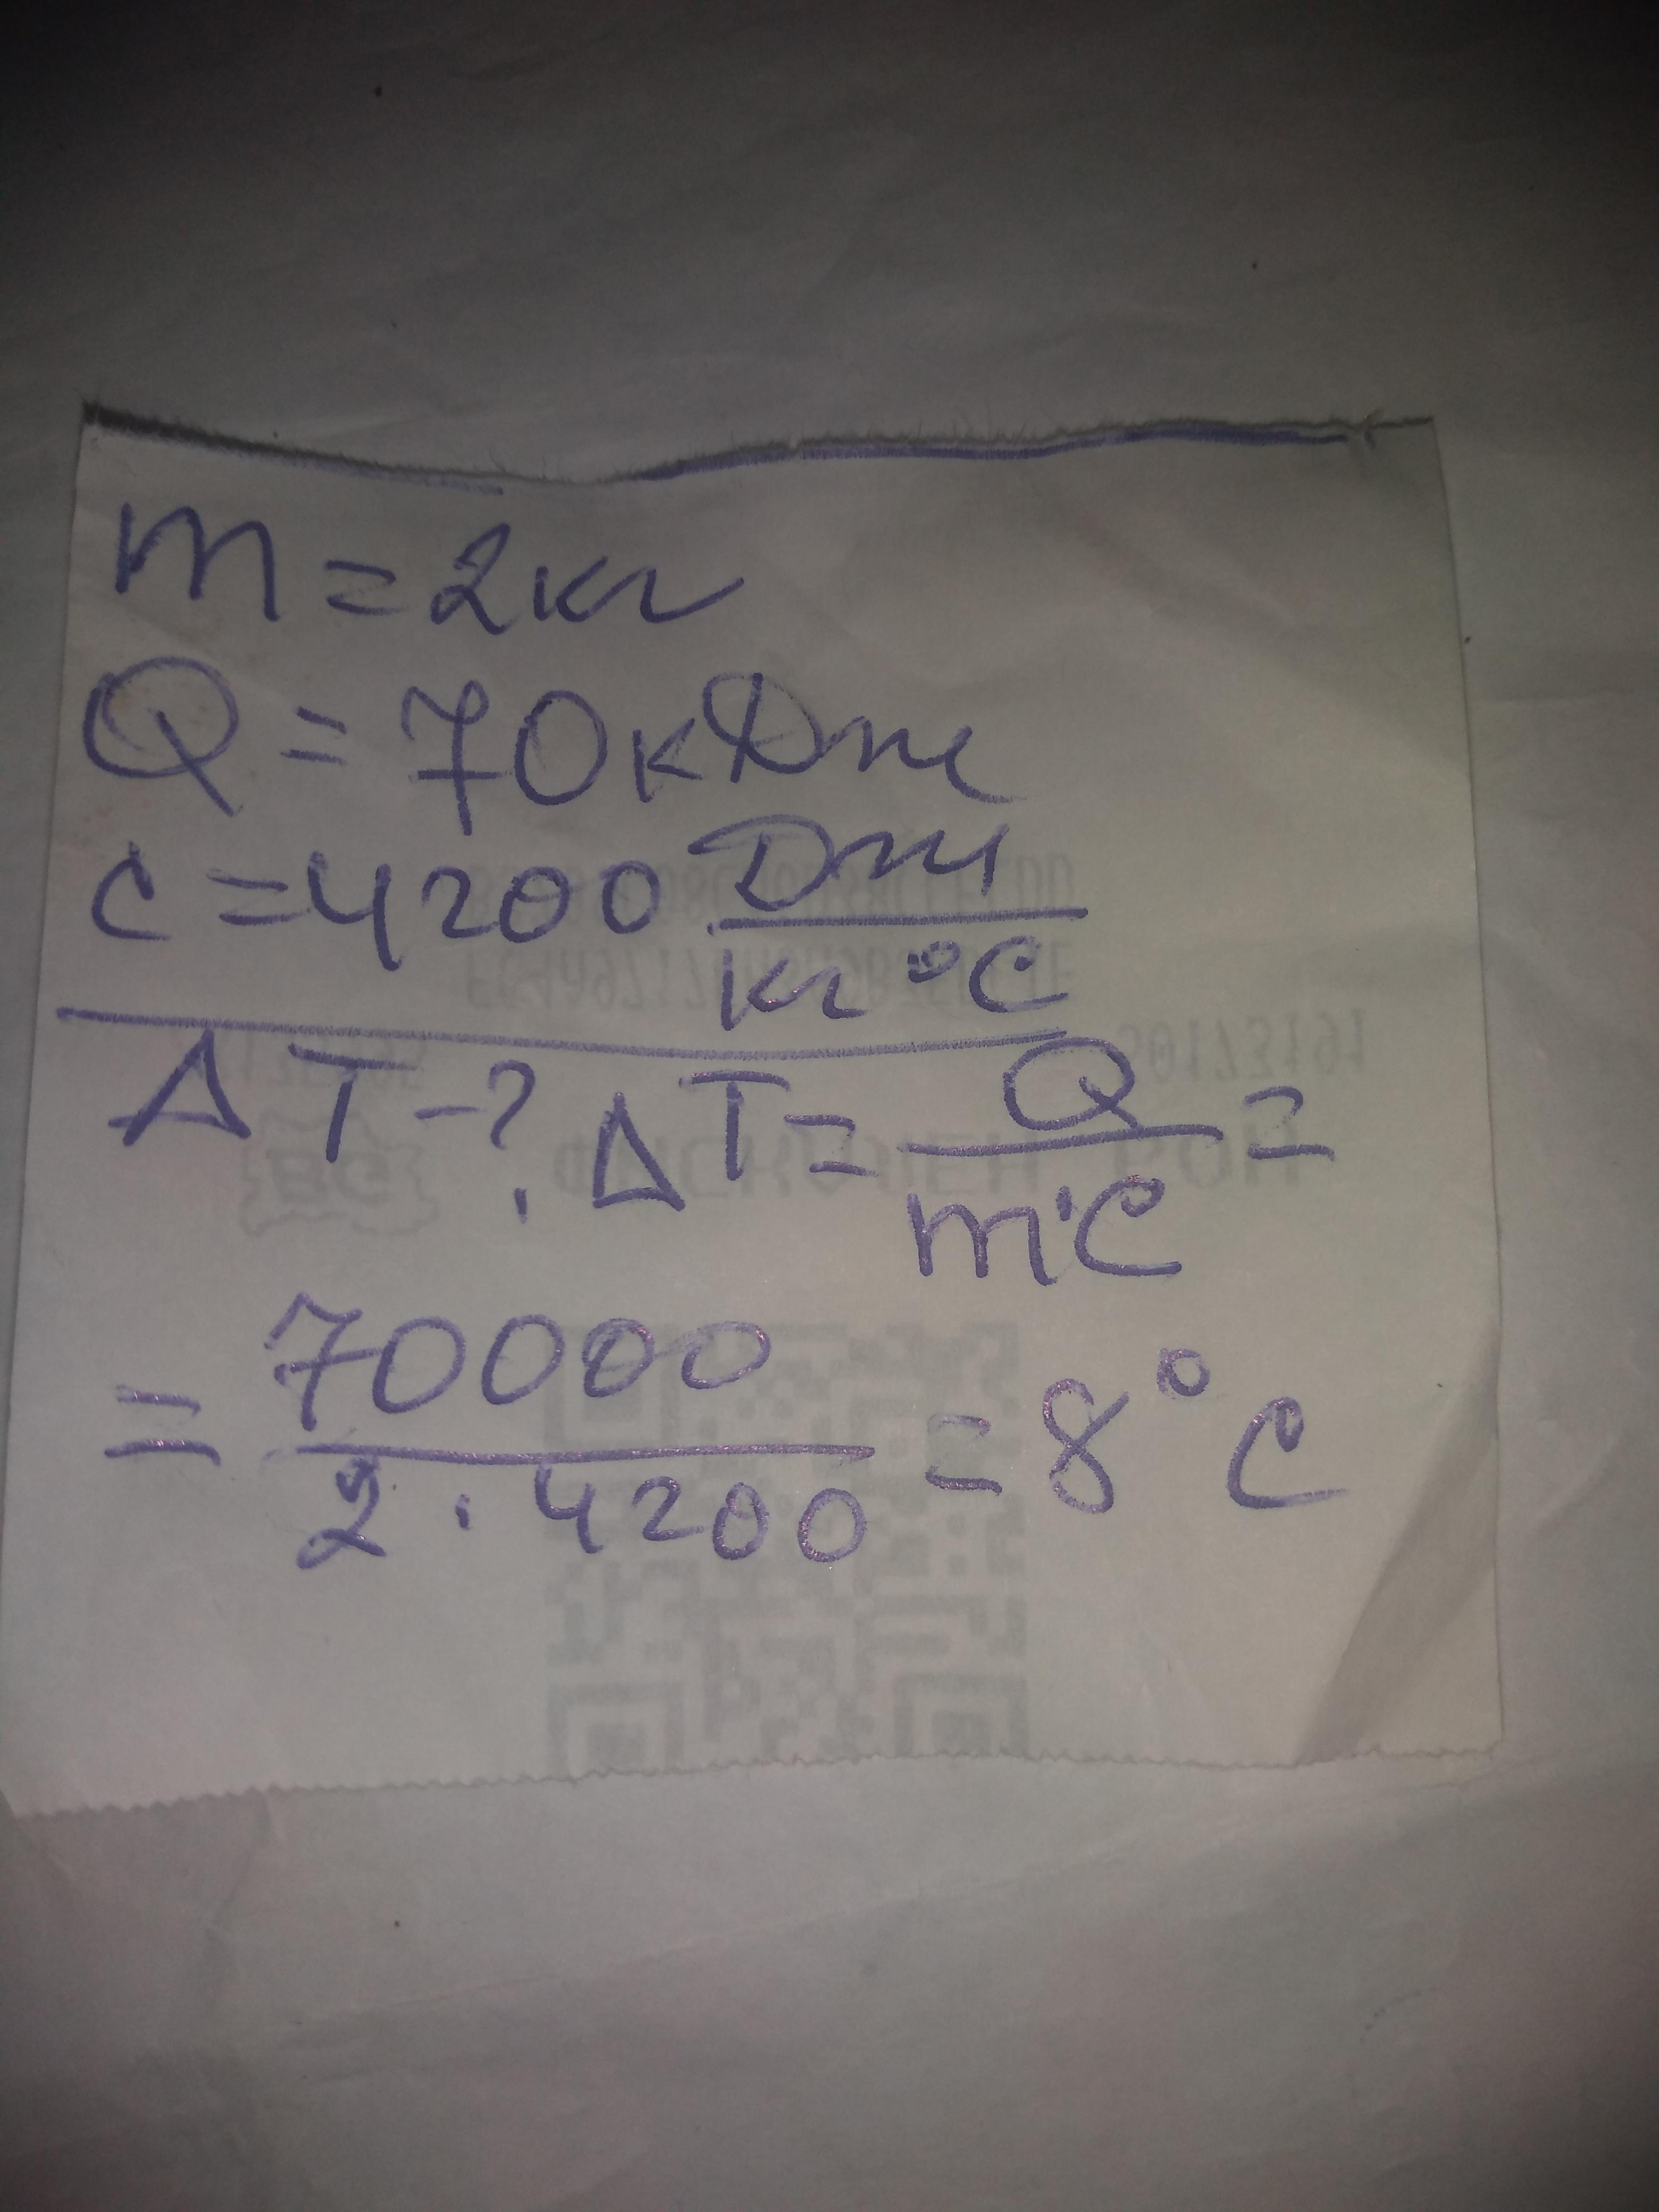 m = 2кг
Q = 70кДж
c = 4200 Дж/кг°C
ΔT - ? ΔT = Q/m·c =
= 70000/2·4200 = 8°C